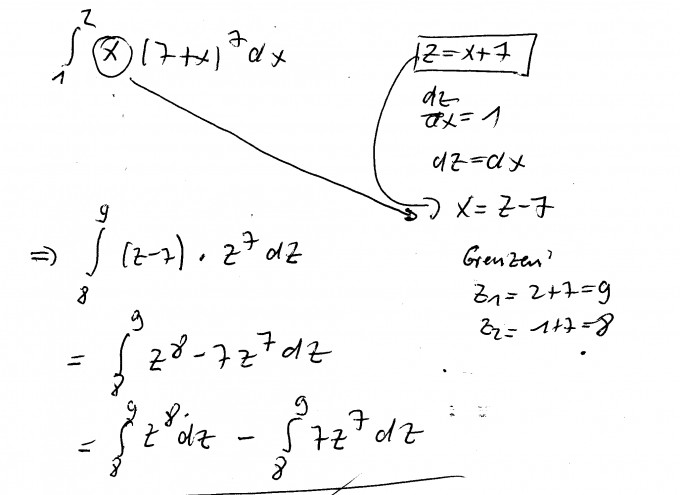 ∫₁² x (7+x)⁷ dx
z = x+7
dz/dx = 1
dz = dx
x = z-7
⇒ ∫₈⁹ (z-7) · z⁷ dz
Grenzen:
z₁ = 2+7 = 9
z₂ = 1+7 = 8
= ∫₈⁹ z⁸ - 7z⁷ dz
= ∫₈⁹ z⁸ dz - ∫₈⁹ 7z⁷ dz